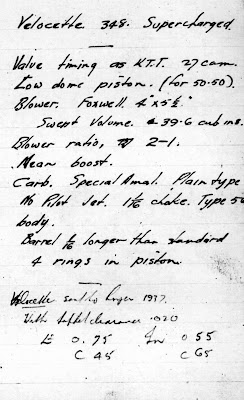 Velocette 348. Supercharged.
Valve timing as K.T.T. 27 cam.
Low dome piston. (for 50.50).
Blower. Foxwell. 4" x 5½"
Swept Volume. 39.6 cub ins.
Blower ratio, 2-1.
Mean boost.
Carb. Special Amal. Plain type
No Pilot Jet. 1 1/16 choke. Type
body.
Barrel 1/16 longer than standard
4 rings in piston.
Velocette 1937.
With tappet clearance .020
O 75 O 55
C 45 C 65